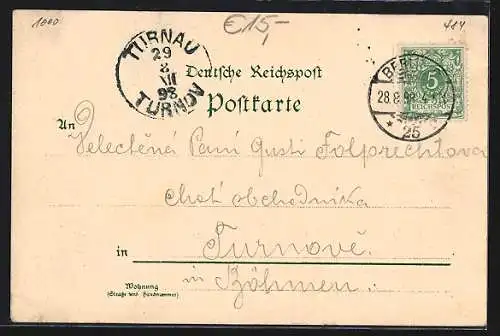 1000
€15,-
TURNAU
29
8
VII
98
TURNOV
Deutsche Reichspost
Postkarte
BERLIN
28.8.98
* 25
5
REICHSPOST
An Velectěná Paní Gusti Folprechtova
choť obchodníka
in Turnově.
in Böhmen.
Wohnung
(Straße und Hausnummer)